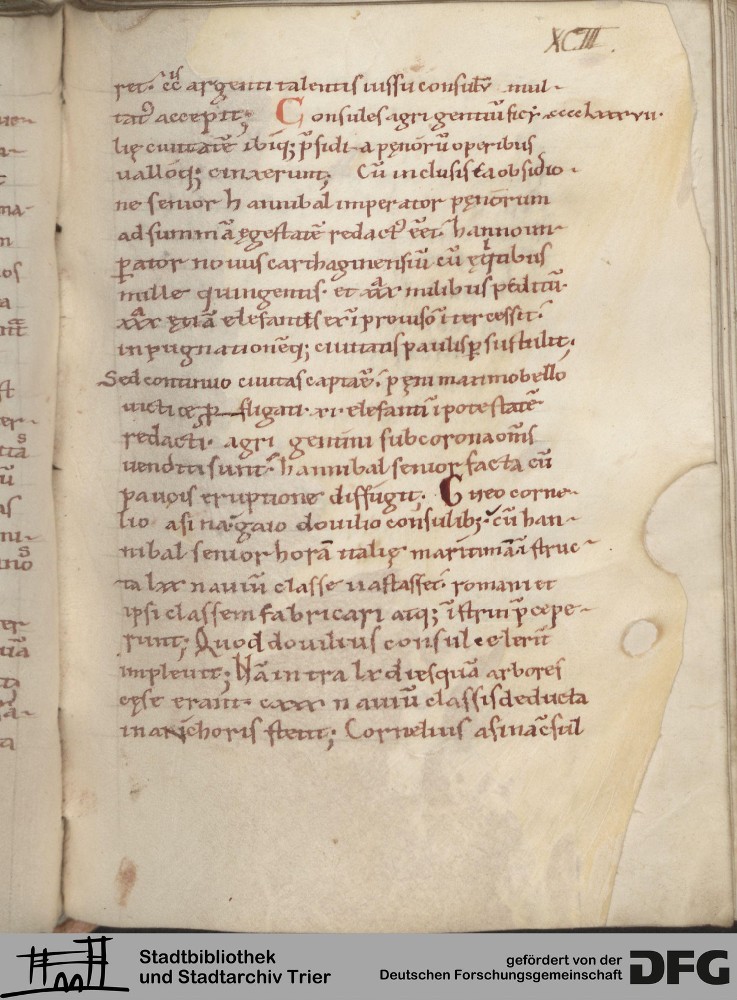 XCIII.
ret. cc argenti talentis iussu consulū mul-
tat᷑ accepit; Consules agrigentiū sicy cccclxxvii.
lię ciuitatē ibiq; p̄sidia pęnorū operibus
ualloq; cinxerunt; Cū inclusus ea obsidio-
ne senior hannibal imperator pęnorum
ad summā ęgestatē redact᷑ eēt. hanno im-
ꝑator nouus carthaginensiū cū ęqtibus
mille quingentis. et xxx milibus peditū.
xxx ętiā elefantis ex īprouiso intercessit.
inpugnationēq; ciuitatis paulisꝑ sustulit.
Sed continuo ciuitas capta ē. pęni maximo bello
uicti ꝓfligati. xi elefanti ī potestatē
redacti. agrigentini sub corona om̄s
uenditi sunt. hannibal senior facta cū
paucis eruptione diffugit; Gneo corne-
lio asina. gaio douilio consulib; cū han-
nibal senior horā italię maritimā īstruc-
ta lxx nauiū classe uastasset. romani et
ipsi classem fabricari atq; īstrui p̄cepe-
runt; Quod douilius consul celerit̄
impleuit; Nā intra lx dies quā arbores
cęse erant. cxxx nauiū classis deducta
in anchoris stetit; Cornelius asina c̄sul
Stadtbibliothek
und Stadtarchiv Trier
gefördert von der
Deutschen Forschungsgemeinschaft
DFG